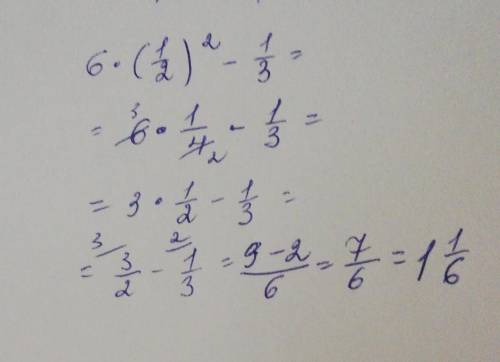 6 · (1/2)² - 1/3 =
= 6̸ ³ · 1/4̸ ₂ - 1/3 =
= 3 · 1/2 - 1/3 =
= ³⁄ 3/2 - ²⁄ 1/3 = (9-2)/6 = 7/6 = 1 1/6